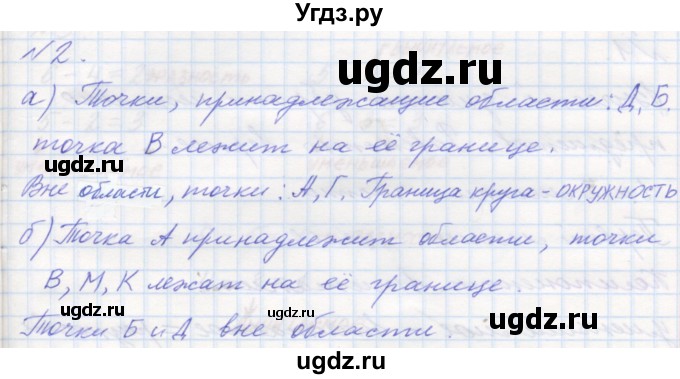 Угдз.ру
№2.
ugdz.ru
а) Точки, принадлежащие области: Д, Б.
точка В лежит на её границе.
ugdz.ru ugdz.ru
Вне области, точки: А, Г. Граница круга - ОКРУЖНОСТЬ
б) Точка А принадлежит области, точки
В, М, К лежат на её границе.
ugdz.ru ugdz.ru
Точки Б и Д вне области.
ugdz.ru